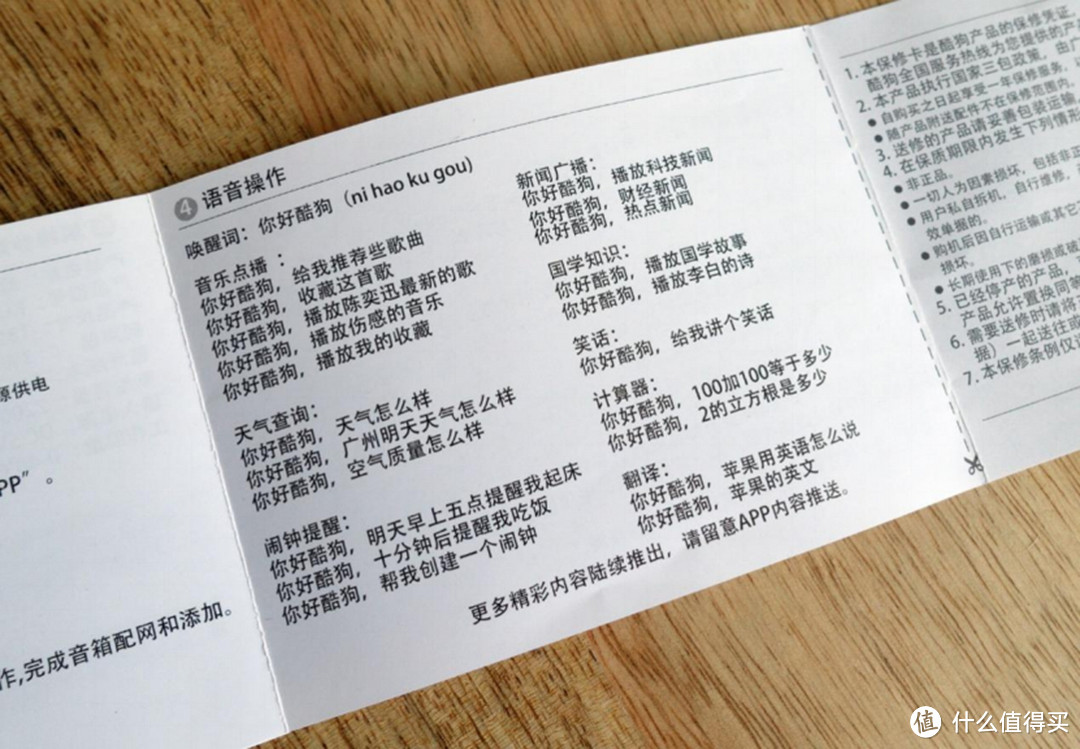 源供电
PP” 。
作,完成音箱配网和添加。
4 语音操作
唤醒词：你好酷狗（ni hao ku gou）
音乐点播 ：
你好酷狗，给我推荐些歌曲
你好酷狗，收藏这首歌
你好酷狗，播放陈奕迅最新的歌
你好酷狗，播放伤感的音乐
你好酷狗，播放我的收藏
天气查询：
你好酷狗，天气怎么样
你好酷狗，广州明天天气怎么样
你好酷狗，空气质量怎么样
闹钟提醒：
你好酷狗，明天早上五点提醒我起床
你好酷狗，十分钟后提醒我吃饭
你好酷狗，帮我创建一个闹钟
新闻广播：
你好酷狗，播放科技新闻
你好酷狗，财经新闻
你好酷狗，热点新闻
国学知识：
你好酷狗，播放国学故事
你好酷狗，播放李白的诗
笑话：
你好酷狗，给我讲个笑话
计算器：
你好酷狗，100加100等于多少
你好酷狗，2的立方根是多少
翻译：
你好酷狗，苹果用英语怎么说
你好酷狗，苹果的英文
更多精彩内容陆续推出，请留意APP内容推送。
1. 本保修卡是酷狗产品的保修凭证，
酷狗全国服务热线为您提供的产
2. 本产品执行国家三包政策，由广
● 自购买之日起享受一年保修服务，
● 随产品附送配件不在保修范围内。
3. 送修的产品请妥善包装运输，
4. 在保质期限内发生下列情形
● 非正品。
● 一切人为因素损坏，包括非正
● 用户私自拆机，自行维修，
效单据的。
● 购机后因自行运输或其它
损坏。
● 长期使用下的磨损或破
5. 已经停产的产品，
产品允许置换同等
6. 需要送修时请将
据）一起送往或
7. 本保修条例仅
值 什么值得买